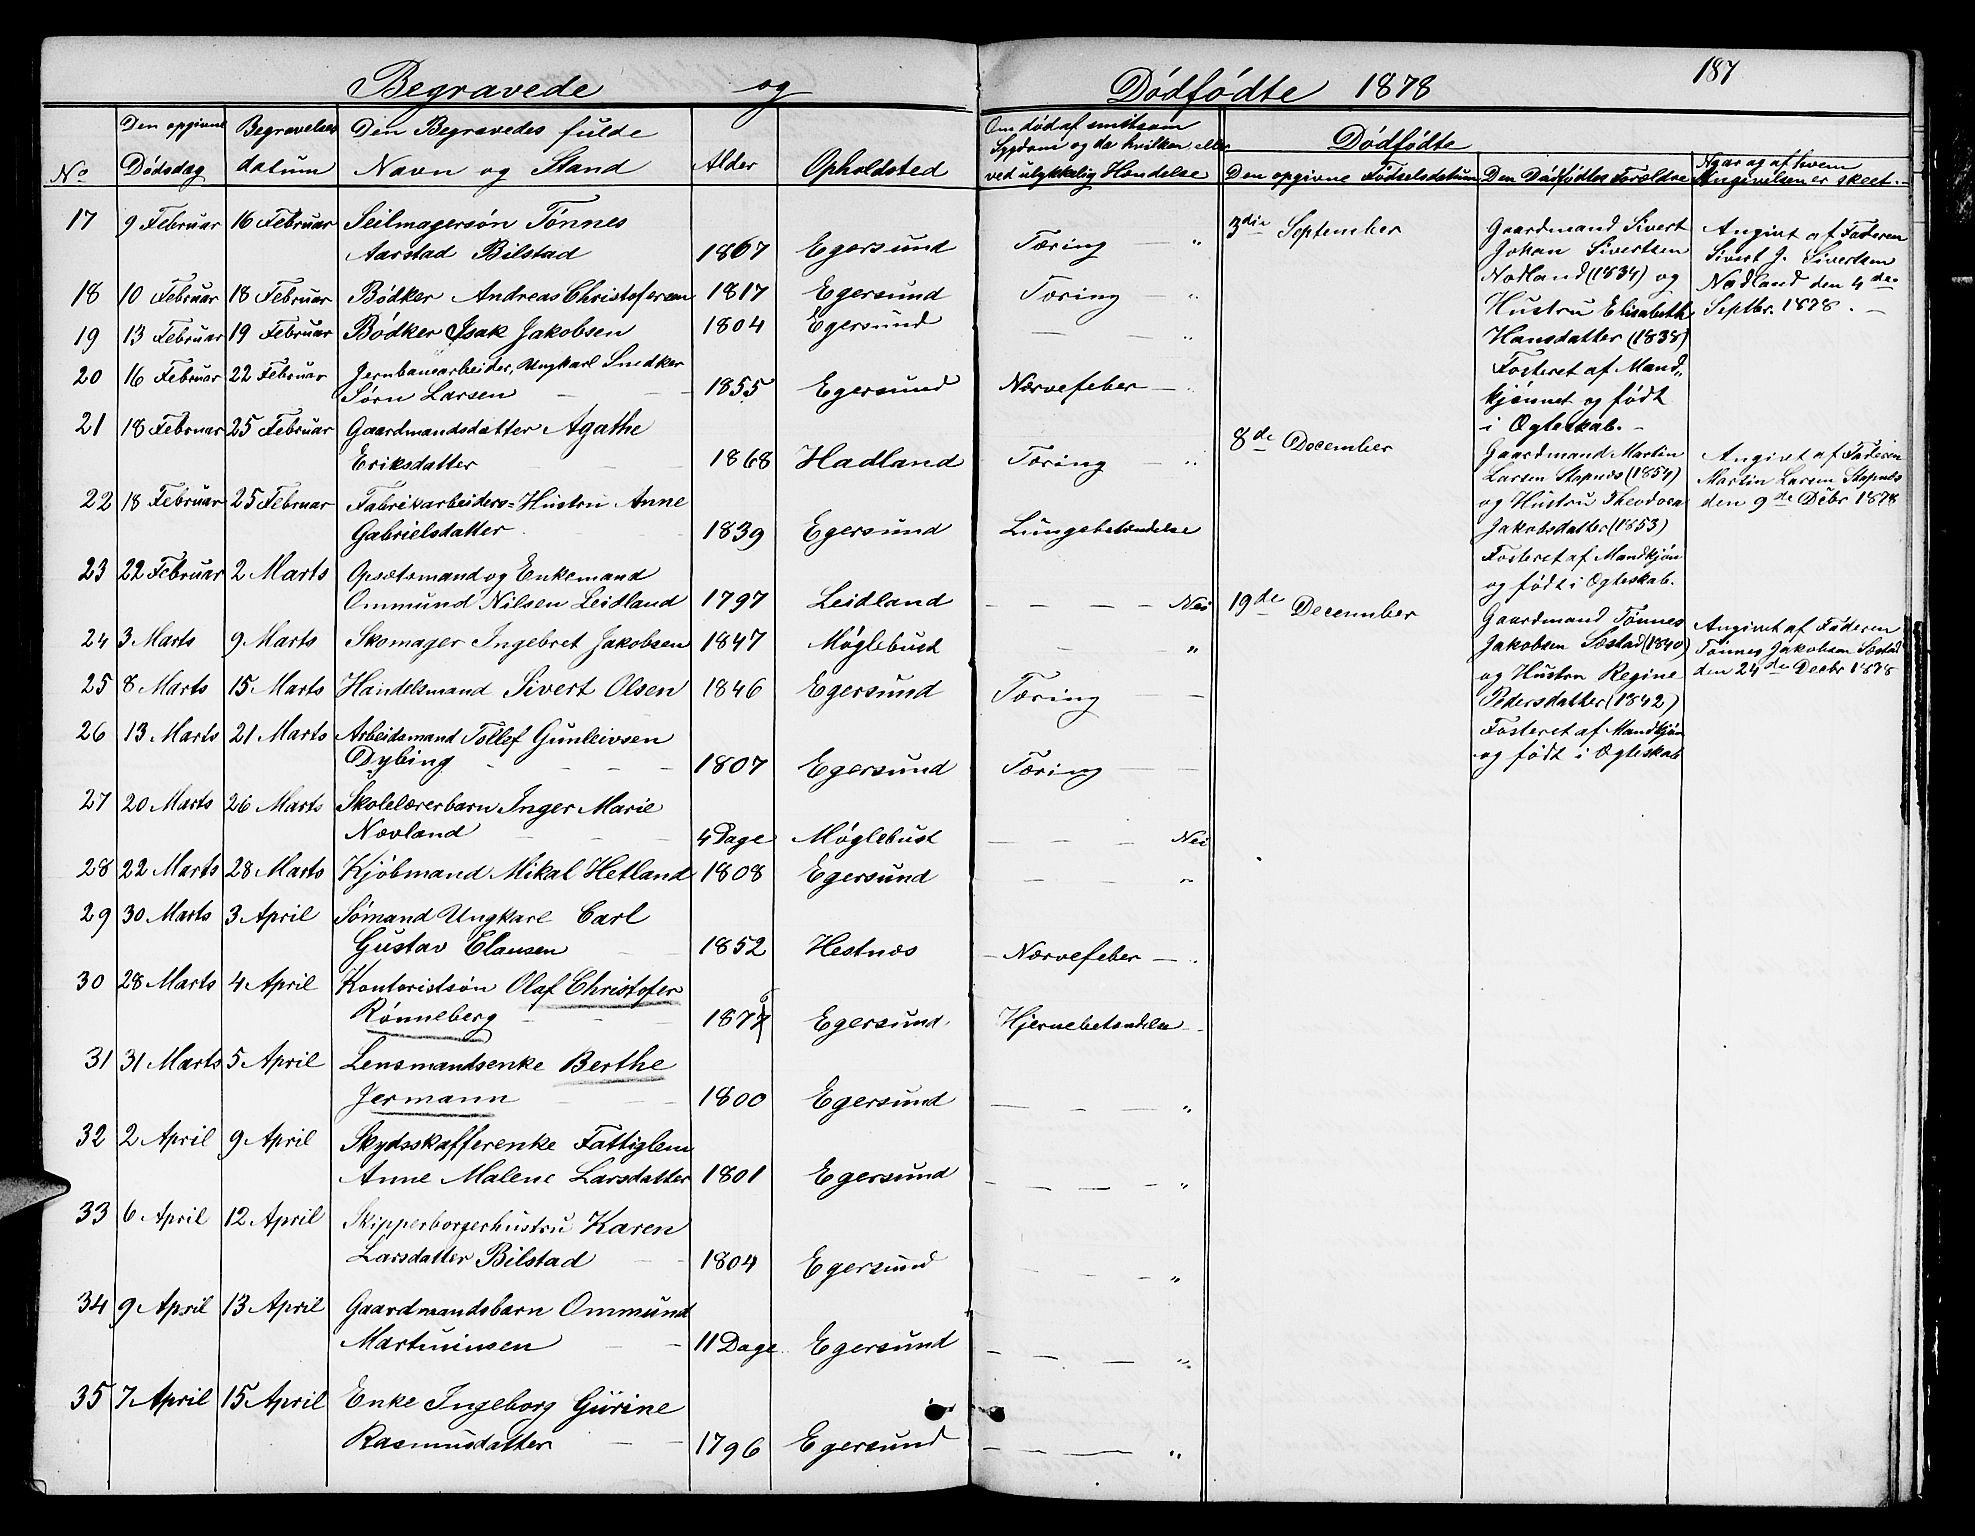 187
Begravede og Dödfödte 1878
No
Den opgivne Dödsdag
Begravelses datum
Den Begravedes fulde Navn og Stand
Alder
Opholdsted
Om död af smitsom Sygdom og da hvilken eller ved ulykkelig Hændelse
Dödfödte
Den opgivne Födselsdatum
Den Dödfödtes Forældre
Naar og af hvem Angivelsen er skeet.
17 9 Februar 16 Februar Seilmagersön Tönnes
Aarstad Bilstad 1867 Egersund Tæring — "
18 10 Februar 18 Februar Bödker Andreas Christofersen 1817 Egersund Tæring — "
19 13 Februar 19 Februar Bödker Isak Jakobsen 1804 Egersund — — "
20 16 Februar 22 Februar Jernbanearbeider, Ungkarl Snedker
Sörn Larsen — — 1855 Egersund Nervefeber — "
21 18 Februar 25 Februar Gaardmandsdatter Agathe
Eriksdatter — — 1868 Hadland Tæring — "
22 18 Februar 25 Februar Fabrikarbeiders=Hustru Anne
Gabrielsdatter 1839 Egersund Lungebetændelse
23 22 Februar 2 Marts Opsætsmand og Enkemand
Ommund Nilsen Leidland 1797 Leidland — — — — Nei
24 3 Marts 9 Marts Skomager Ingebret Jakobsen 1847 Möglebust — — "
25 8 Marts 15 Marts Handelsmand Sivert Olsen 1846 Egersund Tæring — —
26 13 Marts 21 Marts Arbeidsmand Tollef Gunleivsen
Dybing — — — — 1807 Egersund Tæring — —
27 20 Marts 26 Marts Skolelærerbarn Inger Marie
Nævland — — 4 Dage Möglebust — — — Nei
28 22 Marts 28 Marts Kjöbmand Mikal Hetland 1808 Egersund — — — "
29 30 Marts 3 April Sömand Ungkarl Carl
Gustav Clausen — — 1852 Hestnæs — Nervefeber — .
30 28 Marts 4 April Kontoristsön Olaf Christofer
Rönneberg — — — 1877 6 Egersund Hjernebetændelse —
31 31 Marts 5 April Lensmandsenke Berthe
Jermann — — — 1800 Egersund — — — "
32 2 April 9 April Skydsskafferenke Fattiglem
Anne Malene Larsdatter 1801 Egersund — — — — "
33 6 April 12 April Skipperborgerhustru Karen
Larsdatter Bilstad — — 1804 Egersund — — — "
34 9 April 13 April Gaardmandsbarn Ommund
Martuinsen — — 11 Dage Egersund — — — "
35 7 April 15 April Enke Ingeborg Gurine
Rasmusdatter — — 1796 Egersund — — — "
3die September
Gaardmand Sivert
Johan Sivertsen
Nodland (1834) og
Hustru Elisabeth
Hansdatter (1838)
Fosteret af Mand„
kjönnet og födt
i Ægteskab. —
Angivet af Faderen
Sivert J. Sivertsen
Nodland den 4de
Septbr. 1878. —
8de December
Gaardmand Martin
Larsen Stapnes (1854)
og Hustru Theodora
Jakobsdatter (1853)
Fosteret af Mandkjön
og födt i Ægteskab.
Angivet af Faderen
Martin Larsen Stapnes
den 9de Decbr 1878
19de December
Gaardmand Tönnes
Jakobsen Sæstad (1840)
og Hustru Regine
Pedersdatter (1842)
Fosteret af Mandkjön
og födt i Ægteskab
Angivet af Faderen
Tönnes Jakobsen Sæstad
den 24de Decbr 1878